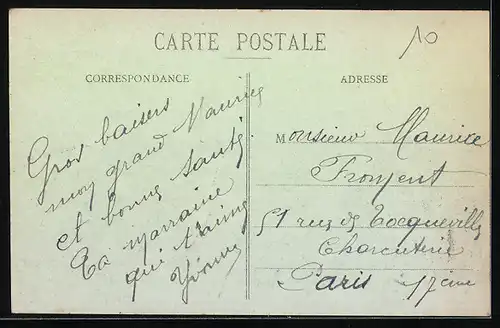 CARTE POSTALE
10
CORRESPONDANCE
ADRESSE
Gros baisers
mon grand Maurice
et bonne santé.
Ta marraine
qui t'aime
Yvonne
Monsieur Maurice
Froment
51 rue de Tocqueville
Charcuterie
Paris 17ème